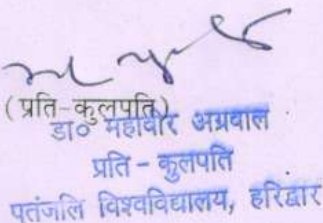 (प्रति-कुलपति)
डा० महावीर अग्रवाल
प्रति - कुलपति
पतंजलि विश्वविद्यालय, हरिद्वार